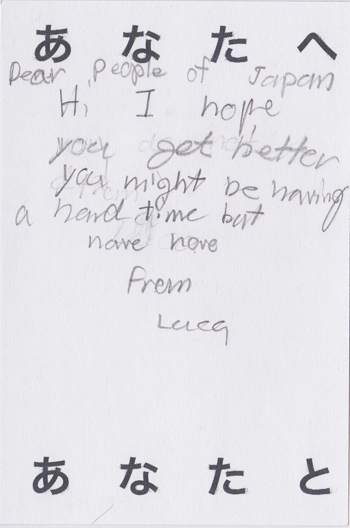 あなたへ
Dear People of Japan
Hi I hope
you get better
you might be having
a hard time but
have hove
From
Luca
あなたと